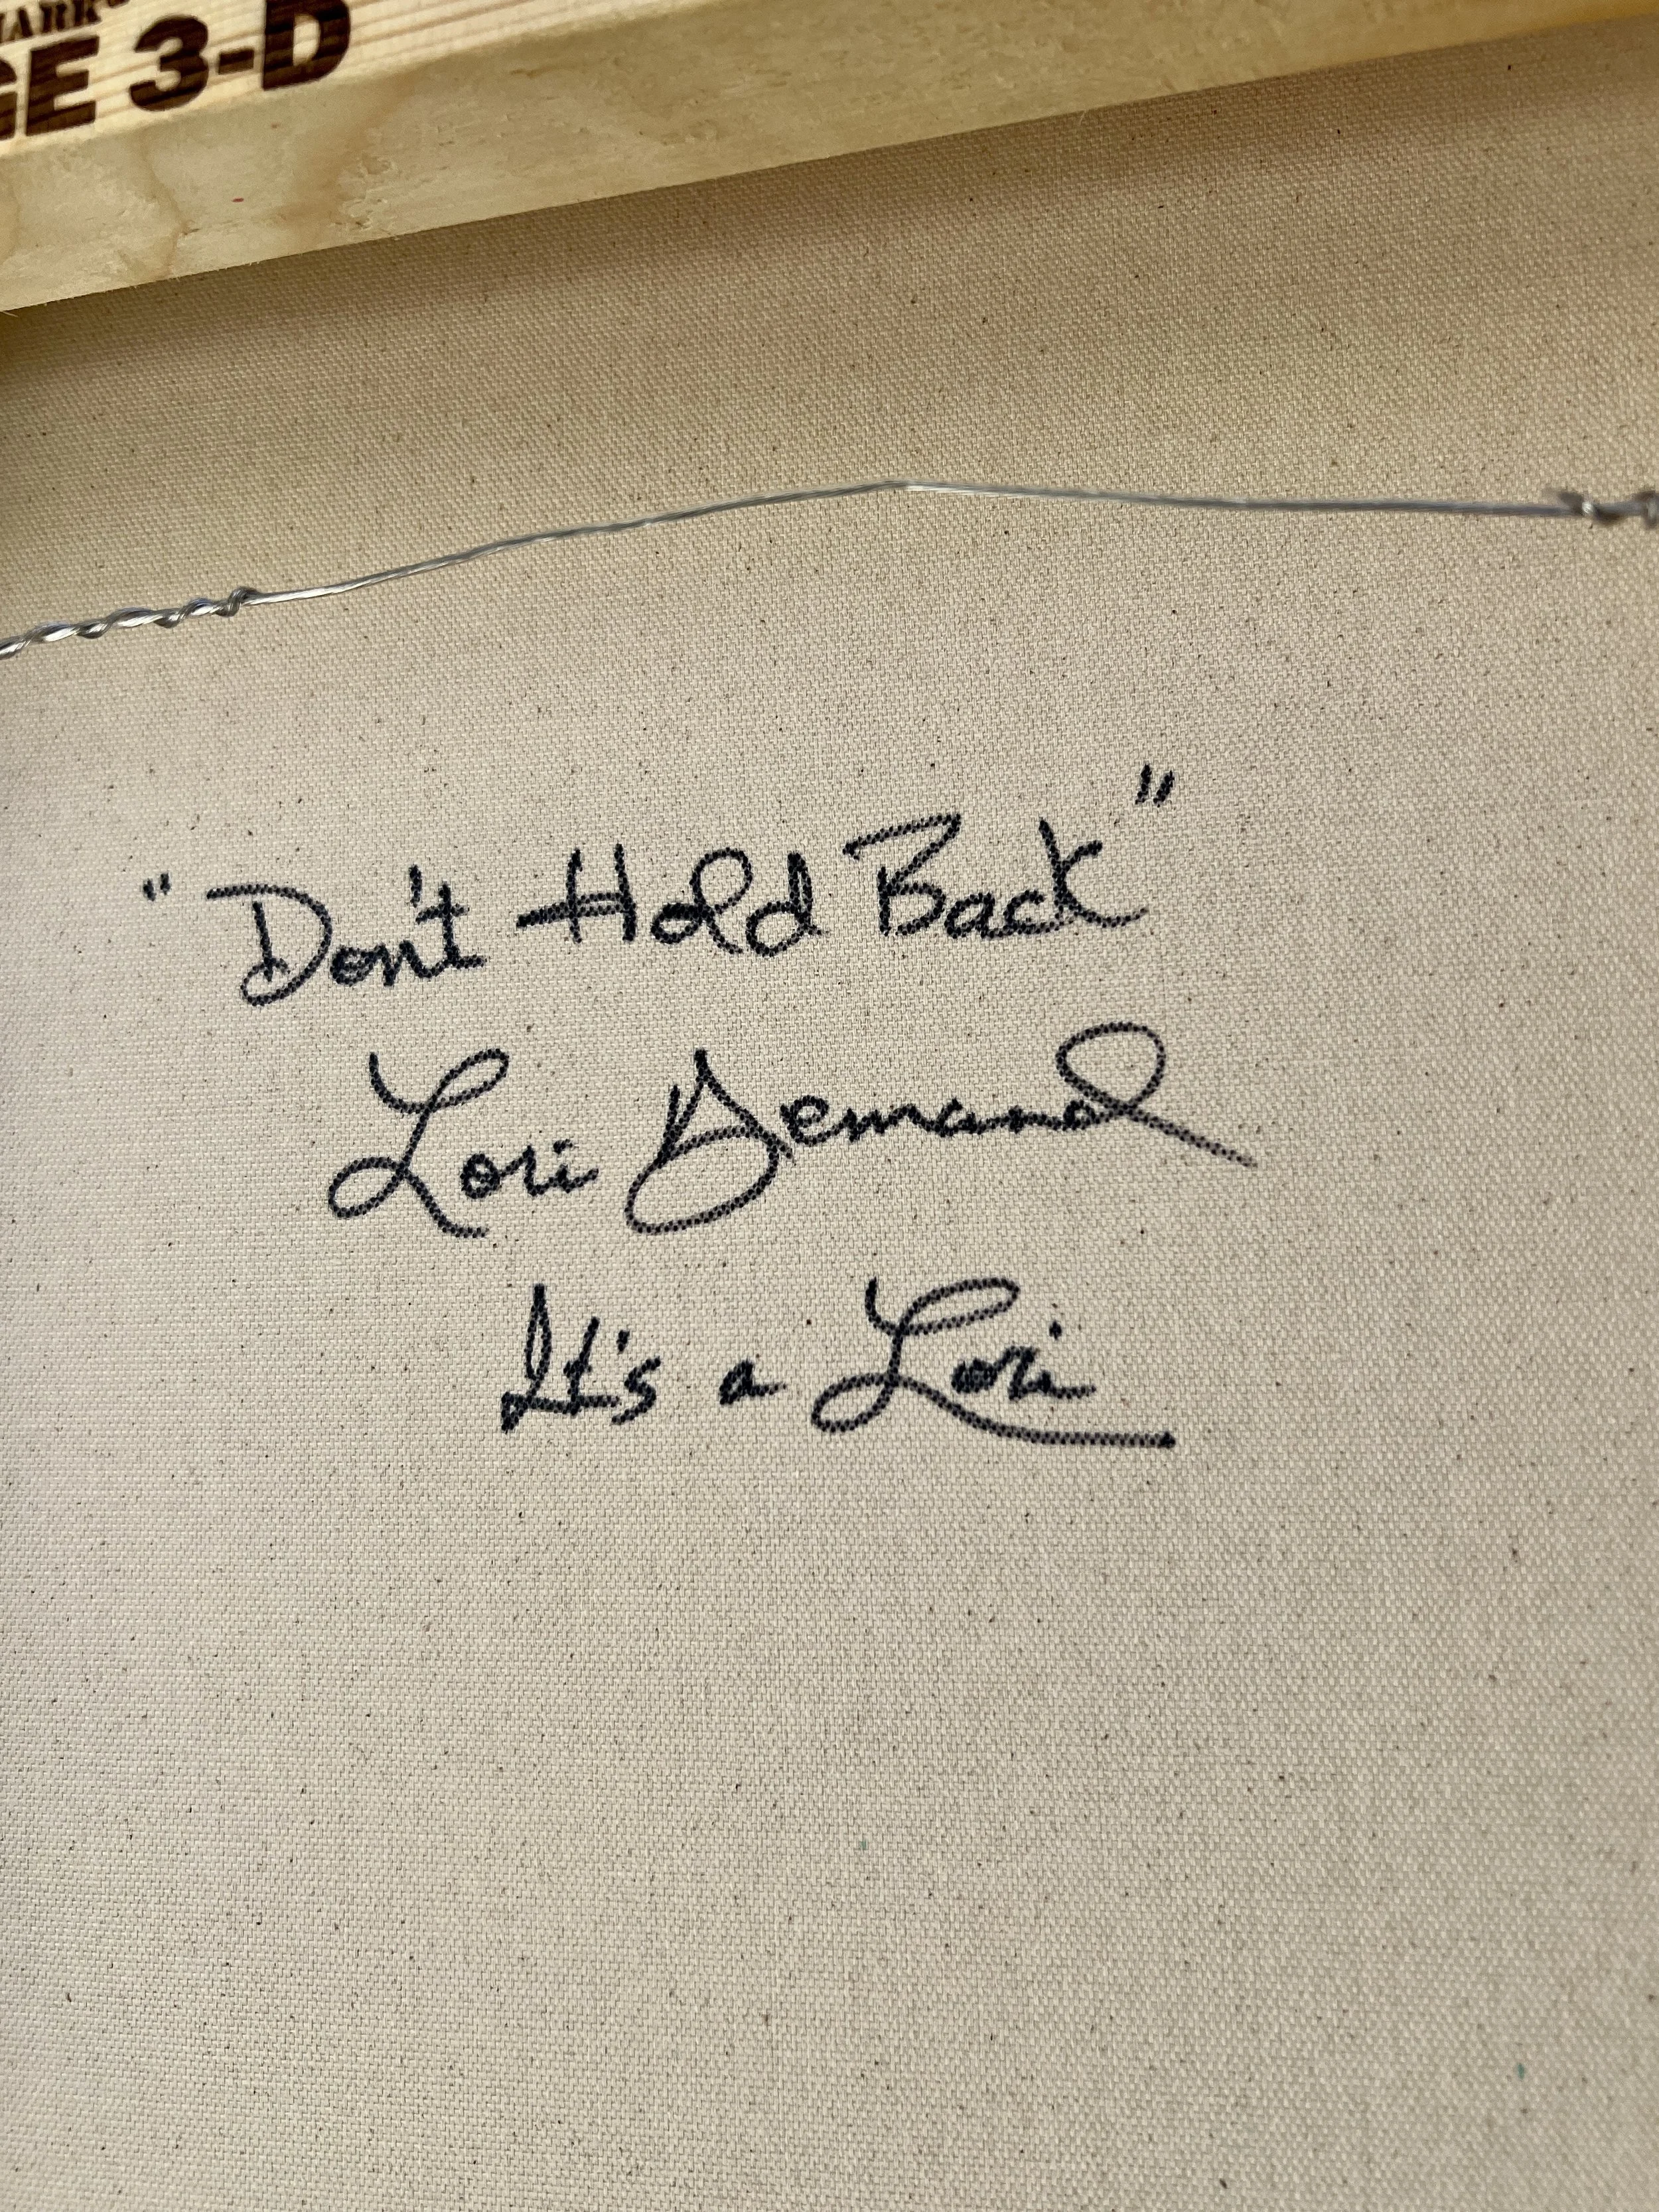 GE 3-D
"Don't Hold Back"
Lori Demand
It's a Lori